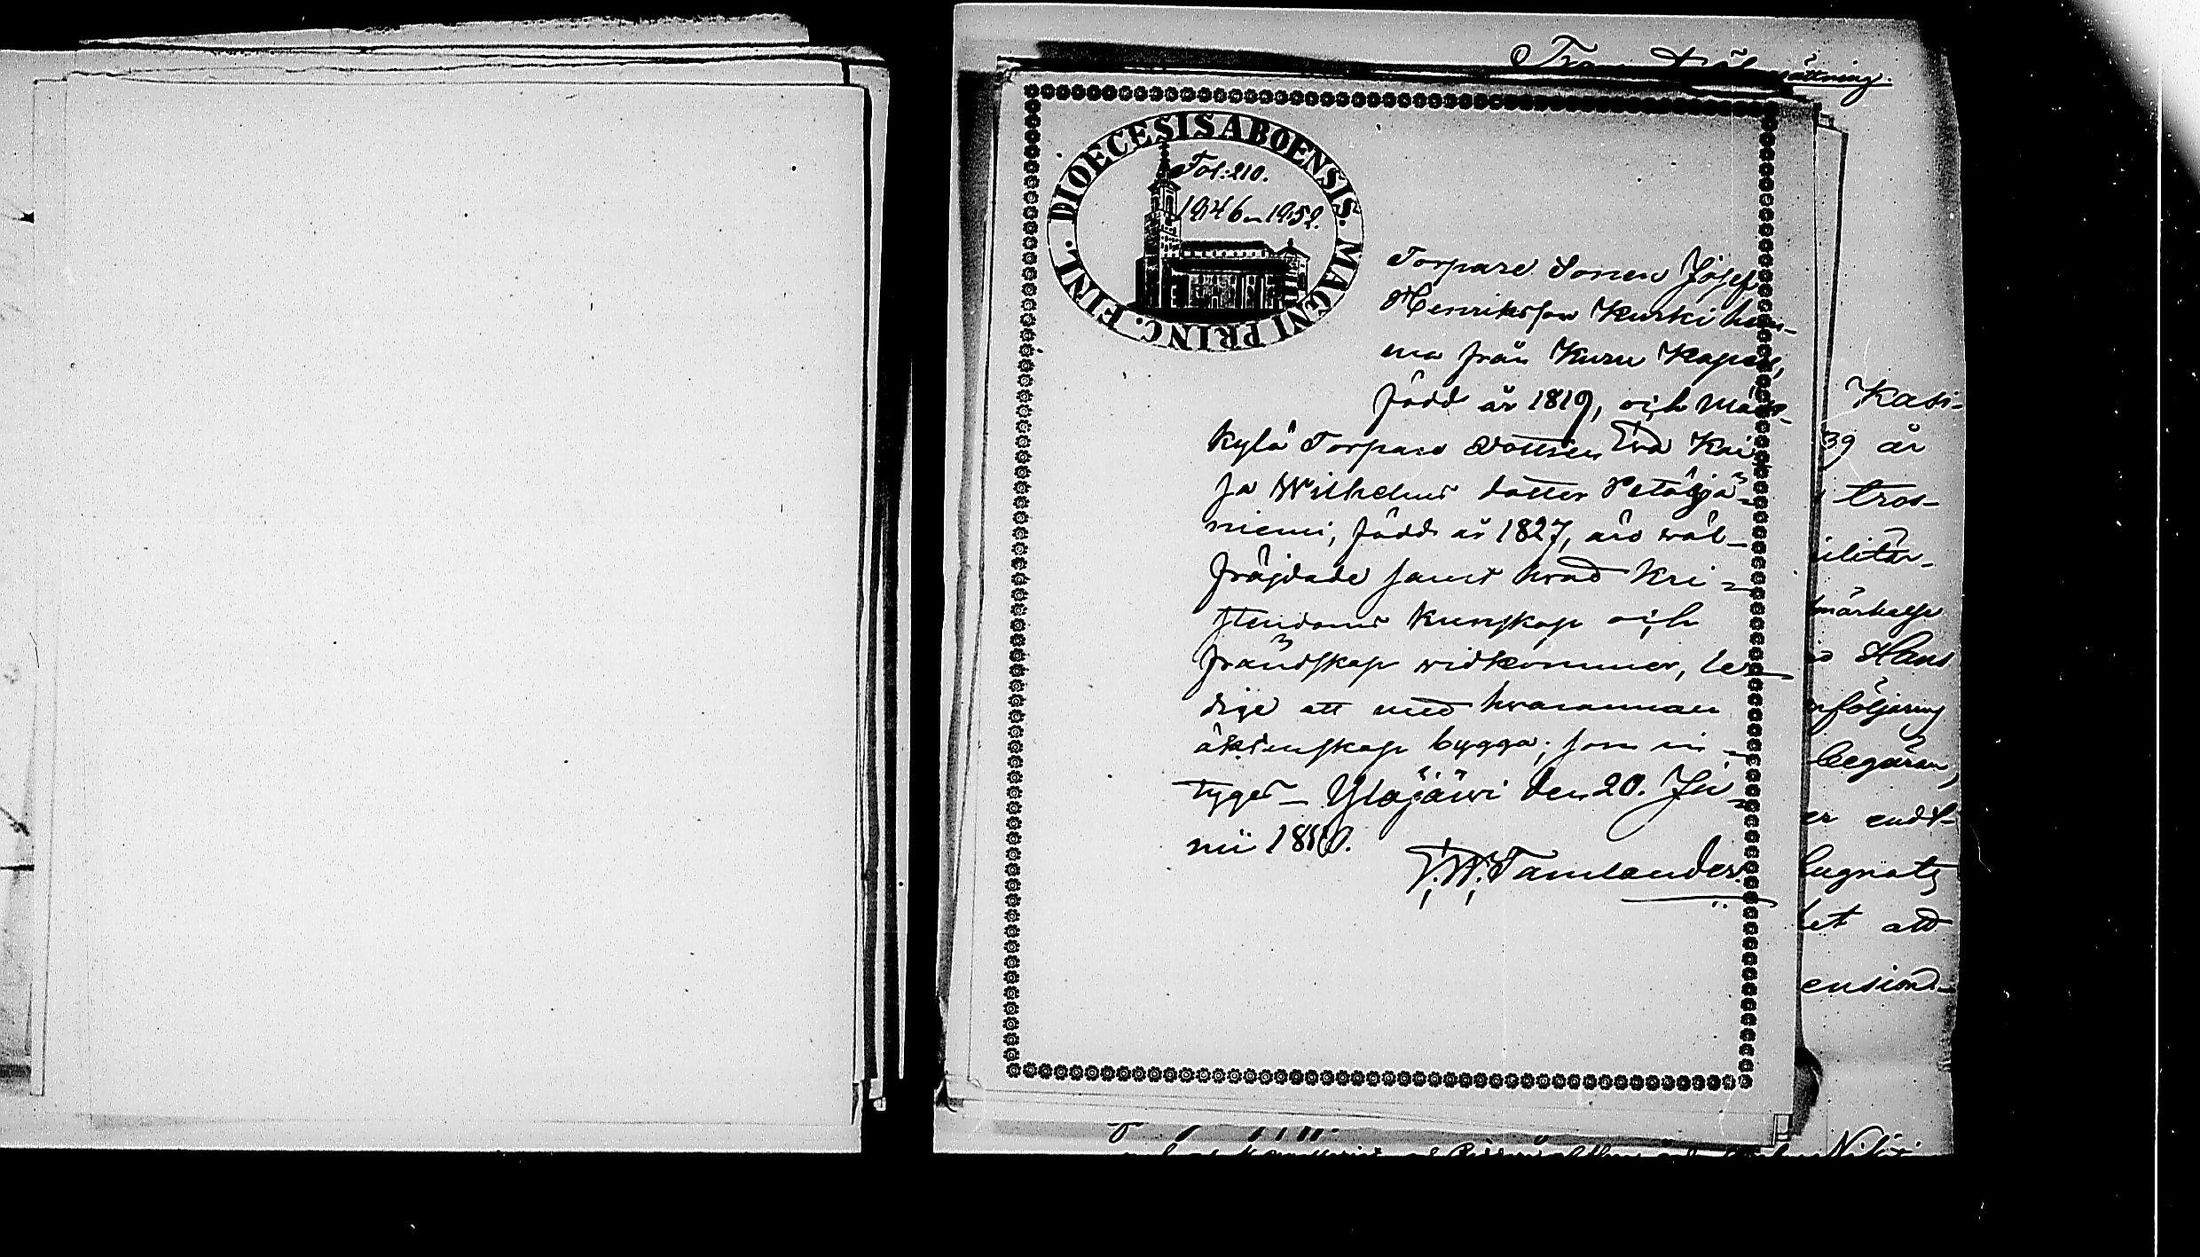 DIOECESIS ABOENSIS. MAGNI PRINC. FINL.
Fol. 210.
1946 1952.
Torpare Sonen Josef
Henriksson Kurki
ma från Kuru Kapell,
född år 1819, och
kylä Torpare Dottren Eva
sa Wilhelms dotter Petäjä-
niemi, född år 1827, äro wäl-
fräjdade samt hvad Kri-
stendoms kunskap och
frändskap widkommer, le-
dige att med hvarannan
äktenskap bygga; som in-
tygas Ylöjärwi den 20. Ju-
nii
F. W. Tamlander.
sättning.
Kasi-
39 år
tros-
ilitär-
märkelse
Hans
följning
begäran,
er endt-
lugnats
het att
ensions-